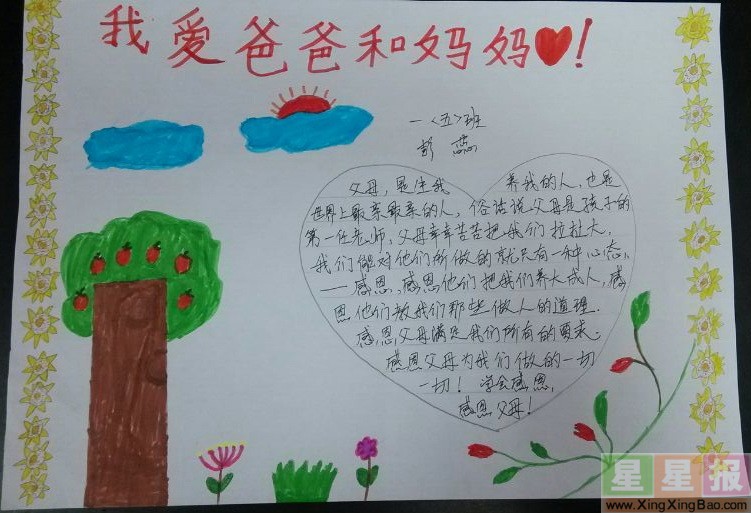 我爱爸爸和妈妈!
一〈五〉班
彭蕊
父母，是生我 养我的人，也是
世界上最亲最亲的人，俗话说父母是孩子的
第一任老师，父母辛辛苦苦把我们拉扯大，
我们能对他们所做的就只有一种心态，
——感恩，感恩他们把我们养大成人，感
恩他们教我们那些做人的道理.
感恩父母满足我们所有的要求.
感恩父母为我们做的一切
一切！学会感恩，
感恩父母！
星星报
www.XingXingBao.com